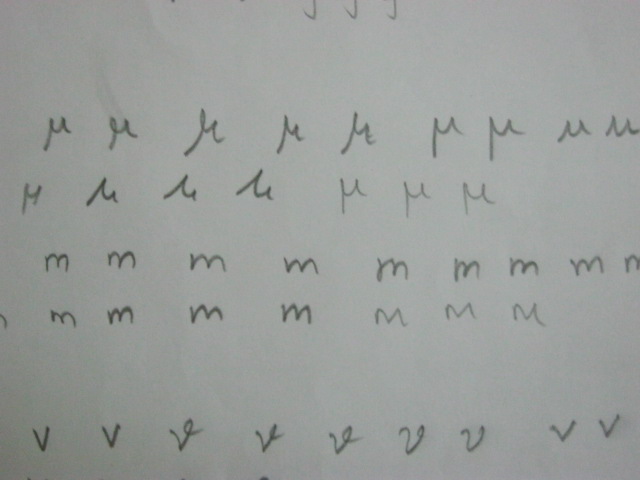 μ μ μ μ μ μ μ μ μ
μ μ μ μ μ μ μ
m m m m m m m m m
m m m m m m m m
v v v v v v v v v